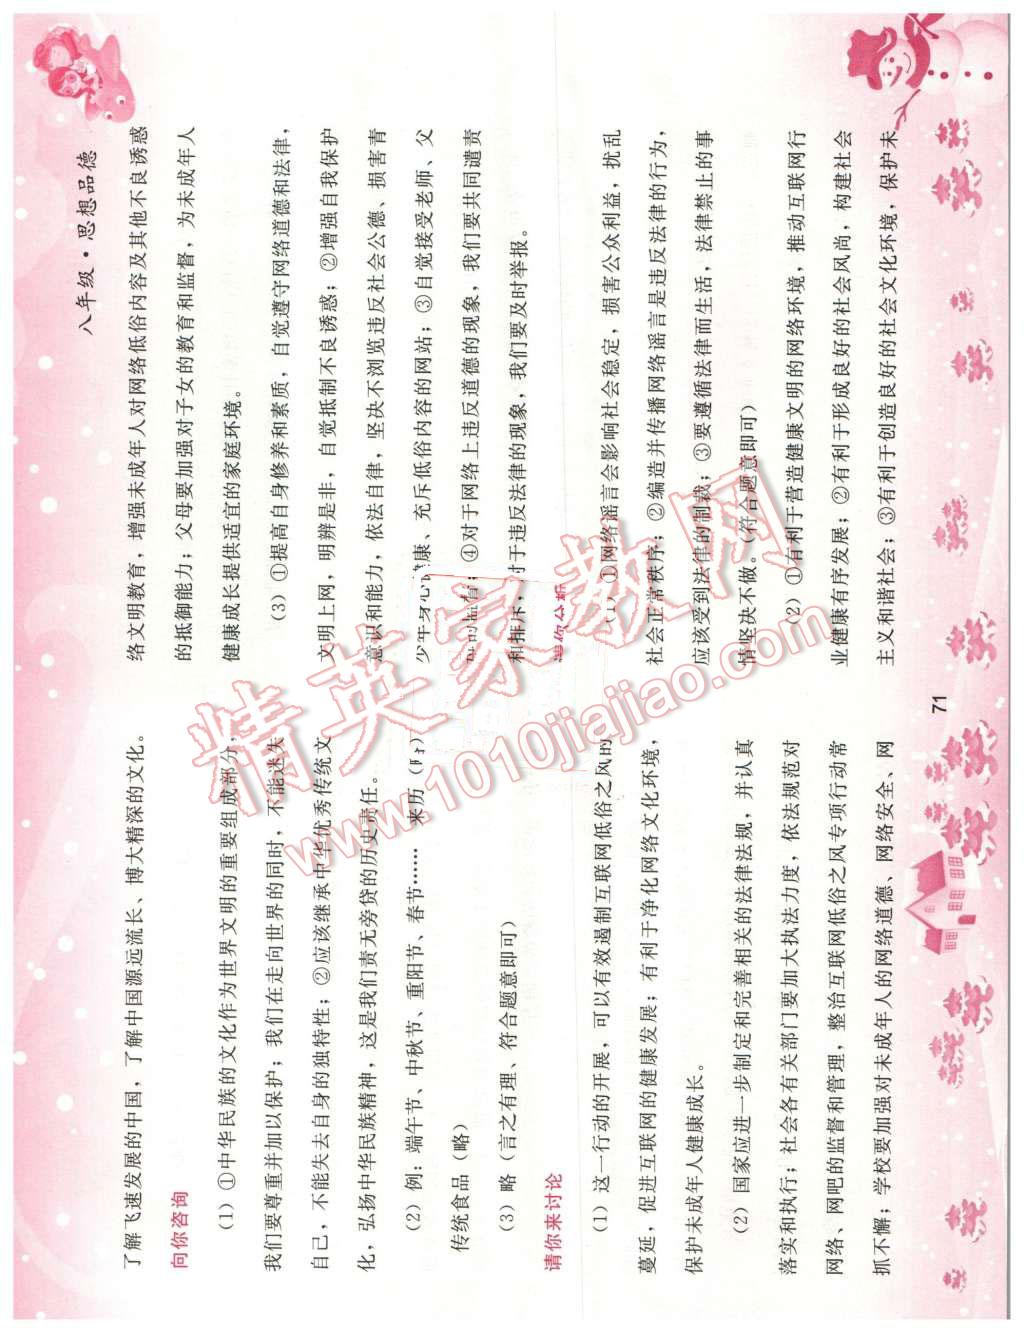 八年级·思想品德
了解飞速发展的中国，了解中国源远流长、博大精深的文化。
问你咨询
（1）①中华民族的文化作为世界文明的重要组成部分，
我们要尊重并加以保护；我们在走向世界的同时，不能迷失
自己，不能失去自身的独特性；②应该继承中华优秀传统文
化，弘扬中华民族精神，这是我们责无旁贷的历史责任。
（2）例：端午节、中秋节、重阳节、春节…… 来历（
传统食品（略）
（3）略（言之有理、符合题意即可）
请你来讨论
（1）这一行动的开展，可以有效遏制互联网低俗之风的
蔓延，促进互联网的健康发展；有利于净化网络文化环境，
保护未成年人健康成长。
（2）国家应进一步制定和完善相关的法律法规，并认真
落实和执行；社会各有关部门要加大执法力度，依法规范对
网络、网吧的监督和管理，整治互联网低俗之风专项行动常
抓不懈；学校要加强对未成年人的网络道德、网络安全、网
络文明教育，增强未成年人对网络低俗内容及其他不良诱惑
的抵御能力；父母要加强对子女的教育和监督，为未成年人
健康成长提供适宜的家庭环境。
（3）①提高自身修养和素质，自觉遵守网络道德和法律，
文明上网，明辨是非，自觉抵制不良诱惑；②增强自我保护
意识和能力，依法自律，坚决不浏览违反社会公德、损害青
少年身心健康、充斥低俗内容的网站；③自觉接受老师、父
母的监督；④对于网络上违反道德的现象，我们要共同谴责
和排斥，对于违反法律的现象，我们要及时举报。
请你分析
（1）①网络谣言会影响社会稳定，损害公众利益，扰乱
社会正常秩序；②编造并传播网络谣言是违反法律的行为，
应该受到法律的制裁；③要遵循法律而生活，法律禁止的事
情坚决不做。（符合题意即可）
（2）①有利于营造健康文明的网络环境，推动互联网行
业健康有序发展；②有利于形成良好的社会风尚，构建社会
主义和谐社会；③有利于创造良好的社会文化环境，保护未
71
精英家教网
www.1010jiajiao.com